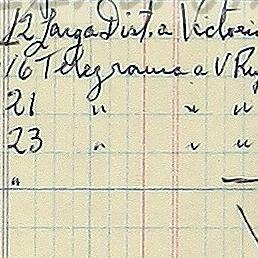 12 Larga Dist. a Victoria
16 Telegrama a V Ru
21 " " "
23 " " "
"